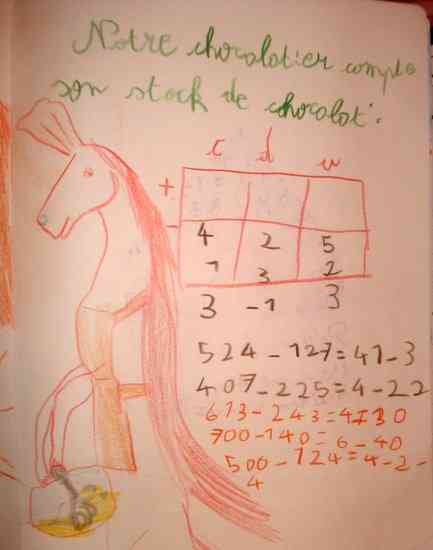 Notre chocolatier compte
son stock de chocolat :
c d u
+
-
4 2 5
1 3 2
3 -1 3
524 - 127 = 41-3
407 - 225 = 4-22
613 - 243 = 4130
700 - 140 = 6-40
500 - 124 = 4-2-
4